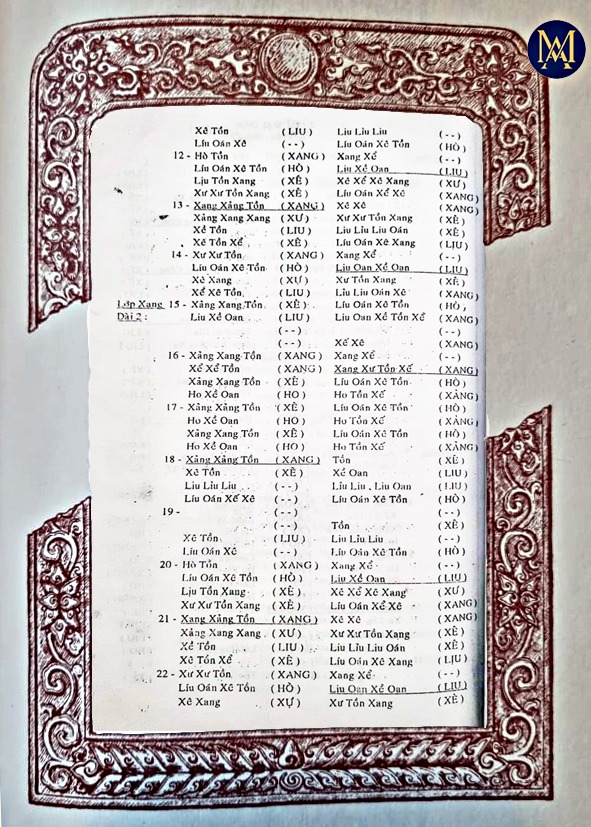 MA
Xê Tồn (LIU) Liu Liu Liu (--)
Líu Oán Xê (--) Líu Oán Xê Tồn (HÒ)
12 - Hò Tồn (XANG) Xang Xể (--)
Líu Oán Xê Tồn (HÒ) Liu Xề Oan (LIU)
Lịu Tồn Xang (XÊ) Xê Xể Xê Xang (XƯ)
Xư Xư Tồn Xang (XÊ) Líu Oán Xể Xê (XANG)
13 - Xang Xảng Tồn (XANG) Xê Xê (XANG)
Xảng Xang Xang (XƯ) Xư Xư Tồn Xang (XÊ)
Xề Tồn (LIU) Liu Lỉu Liu Oán (XÊ)
Xê Tồn Xể (XÊ) Líu Oán Xê Xang (LỊU)
14 - Xư Xư Tồn (XANG) Xang Xể (--)
Líu Oán Xê Tồn (HÒ) Liu Oan Xề Oan (LIU)
Xê Xang (XỰ) Xư Tồn Xang (XÊ)
Xể Xê Tồn (LIU) Liu Liu Oán Xê (XANG)
Lớp Xang 15 - Xảng Xang Tồn (XÊ) Líu Oán Xê Tồn (HÒ)
Dài 2 : Liu Xề Oan (LIU) Liu Oan Xề Tồn Xể (XANG)
(--) (--)
(--) Xế Xê (XANG)
16 - Xảng Xang Tồn (XANG) Xang Xể (--)
Xể Xể Tồn (XANG) Xang Xư Tồn Xế (XANG)
Xảng Xang Tồn (XÊ) Líu Oán Xê Tồn (HÒ)
Ho Xề Oan (HO) Ho Tồn Xế (XẢNG)
17 - Xảng Xảng Tồn (XÊ) Líu Oán Xê Tồn (HÒ)
Ho Xề Oan (HO) Ho Tồn Xế (XẢNG)
Xảng Xang Tồn (XÊ) Líu Oán Xê Tồn (HÒ)
Ho Xề Oan (HO) Ho Tồn Xế (XẢNG)
18 - Xảng Xảng Tồn (XANG) Tồn (XÊ)
Xê Tồn (XÊ) Xề Oan (LIU)
Liu Lỉu Liu (--) Liu Liu , Liu Oan (LIU)
Líu Oán Xế Xê (--) Líu Oán Xê Tồn (HÒ)
19 - (--) (--)
(--) Tồn (XÊ)
Xê Tồn (LIU) Liu Liu Liu (--)
Líu Oán Xê (--) Líu Oán Xê Tồn (HÒ)
20 - Hò Tồn (XANG) Xang Xể (--)
Líu Oán Xê Tồn (HÒ) Liu Xề Oan (LIU)
Lịu Tồn Xang (XÊ) Xê Xể Xê Xang (XƯ)
Xư Xư Tồn Xang (XÊ) Líu Oán Xể Xê (XANG)
21 - Xang Xảng Tồn (XANG) Xê Xê (XANG)
Xảng Xang Xang (XƯ) Xư Xư Tồn Xang (XÊ)
Xề Tồn (LIU) Liu Lỉu Liu Oán (XÊ)
Xê Tồn Xể (XÊ) Líu Oán Xê Xang (LỊU)
22 - Xư Xư Tồn (XANG) Xang Xể (--)
Líu Oán Xê Tồn (HÒ) Liu Oan Xề Oan (LIU)
Xê Xang (XỰ) Xư Tồn Xang (XÊ)